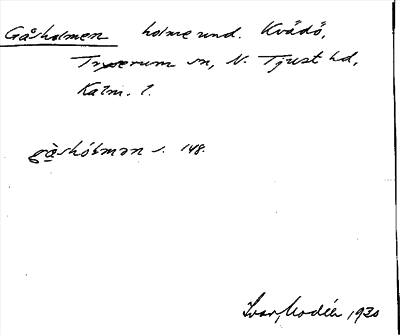 Gåsholmen holme und. Kvädö,
Tryserum sn, N. Tjust hd,
Kalm. l.
gåshólmən s. 148.
Ivar Modéer 1930